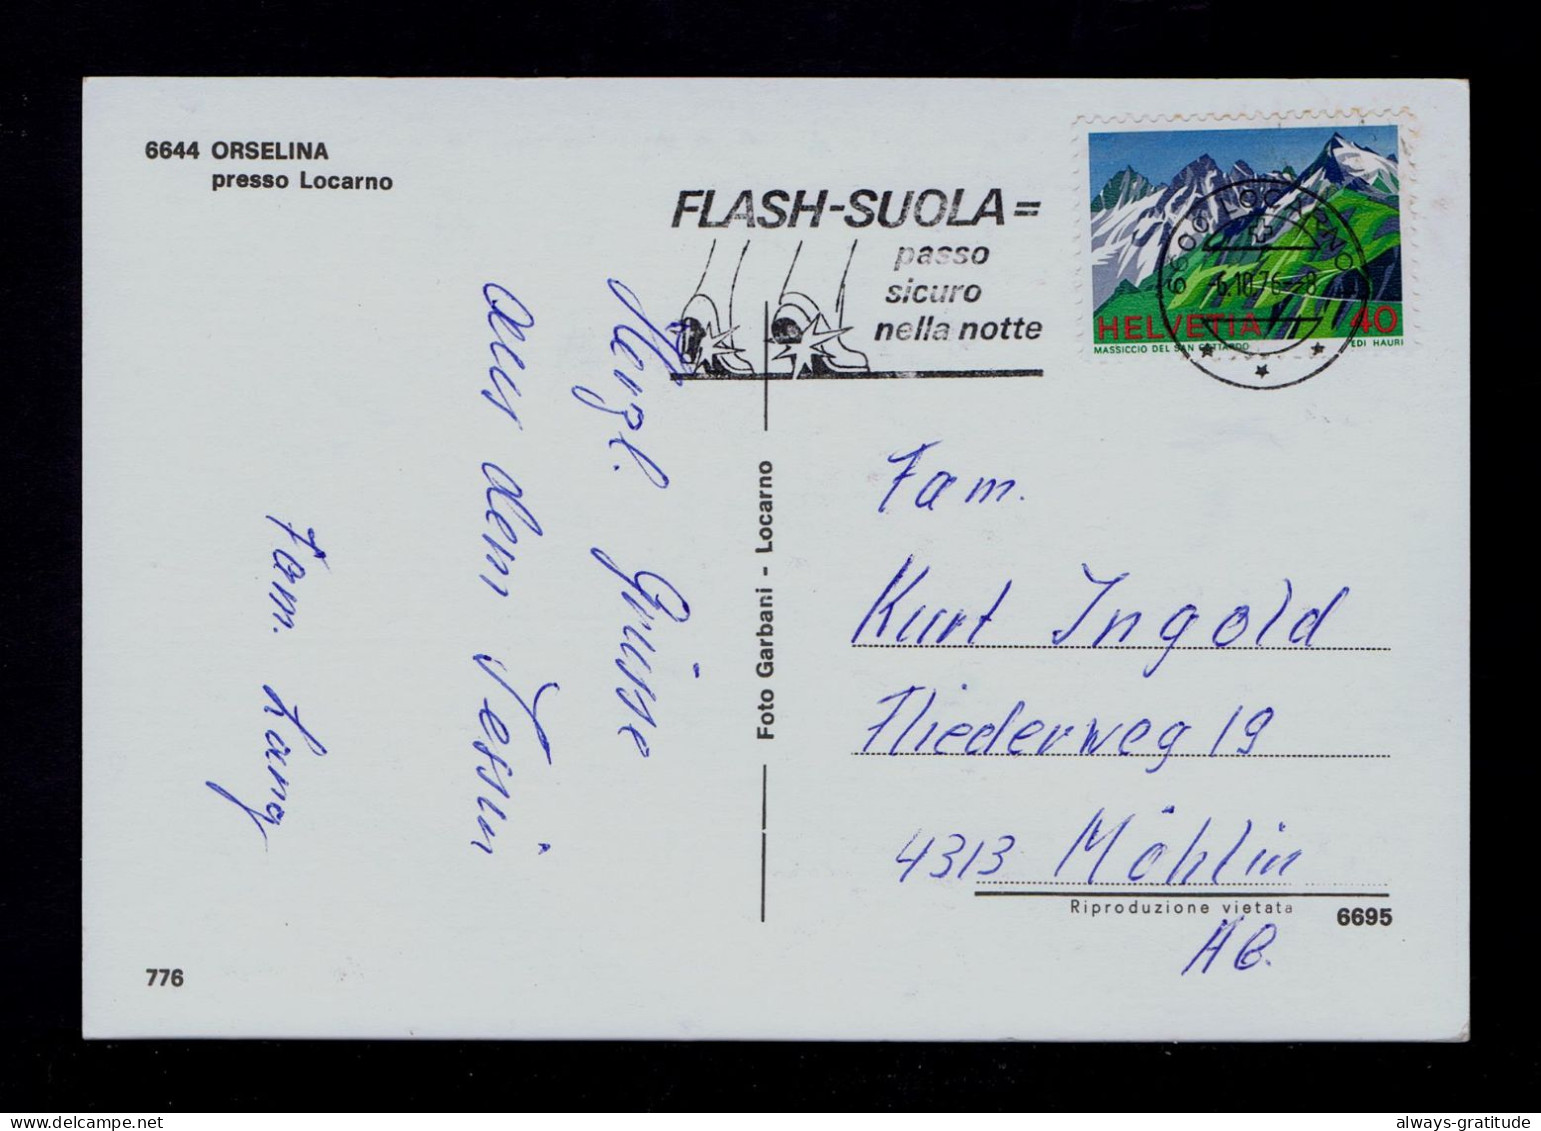 6644 ORSELINA
presso Locarno
FLASH-SUOLA =
passo
sicuro
nella notte
6600 LOCARNO
-6.10.76--8
HELVETIA 40
MASSICCIO DEL SAN GOTTARDO
EDI HAURI
Herzl. Grüsse
aus dem Tessin
Fam. Lang
Foto Garbani - Locarno
Fam.
Kurt Ingold
Fliederweg 19
4313 Möhlin
Riproduzione vietata
6695
776
always-gratitude